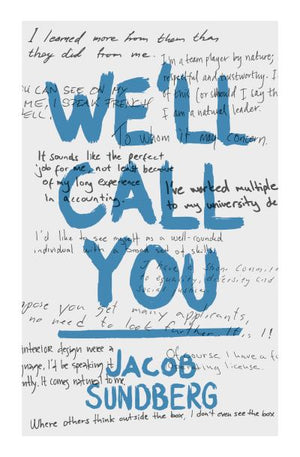 I learned more from them than
they did from me.
I'm a team player by nature;
respectful and trustworthy. I
if this (or should I say th
I am a natural leader.
U CAN SEE ON MY
ME, I SPEAK FRENCH
ELL.
WE'LL
To whom it may concern.
It sounds like the perfect
job for me, not least because
of my long experience
in accounting.
I've worked multiple
to my university de
CALL
I'd like to see myself as a well-rounded
individual with a broad set of skills
I have a strong commitm
to equality, diversity and
social justice
YOU
pose you get many applicants,
no need to look further. It is I!
interior design were a
nguage, I'd be speaking it
ntly. It comes natural to me.
Of course I have a f
driving license.
JACOB
SUNDBERG
Where others think outside the box, I don't even see the box